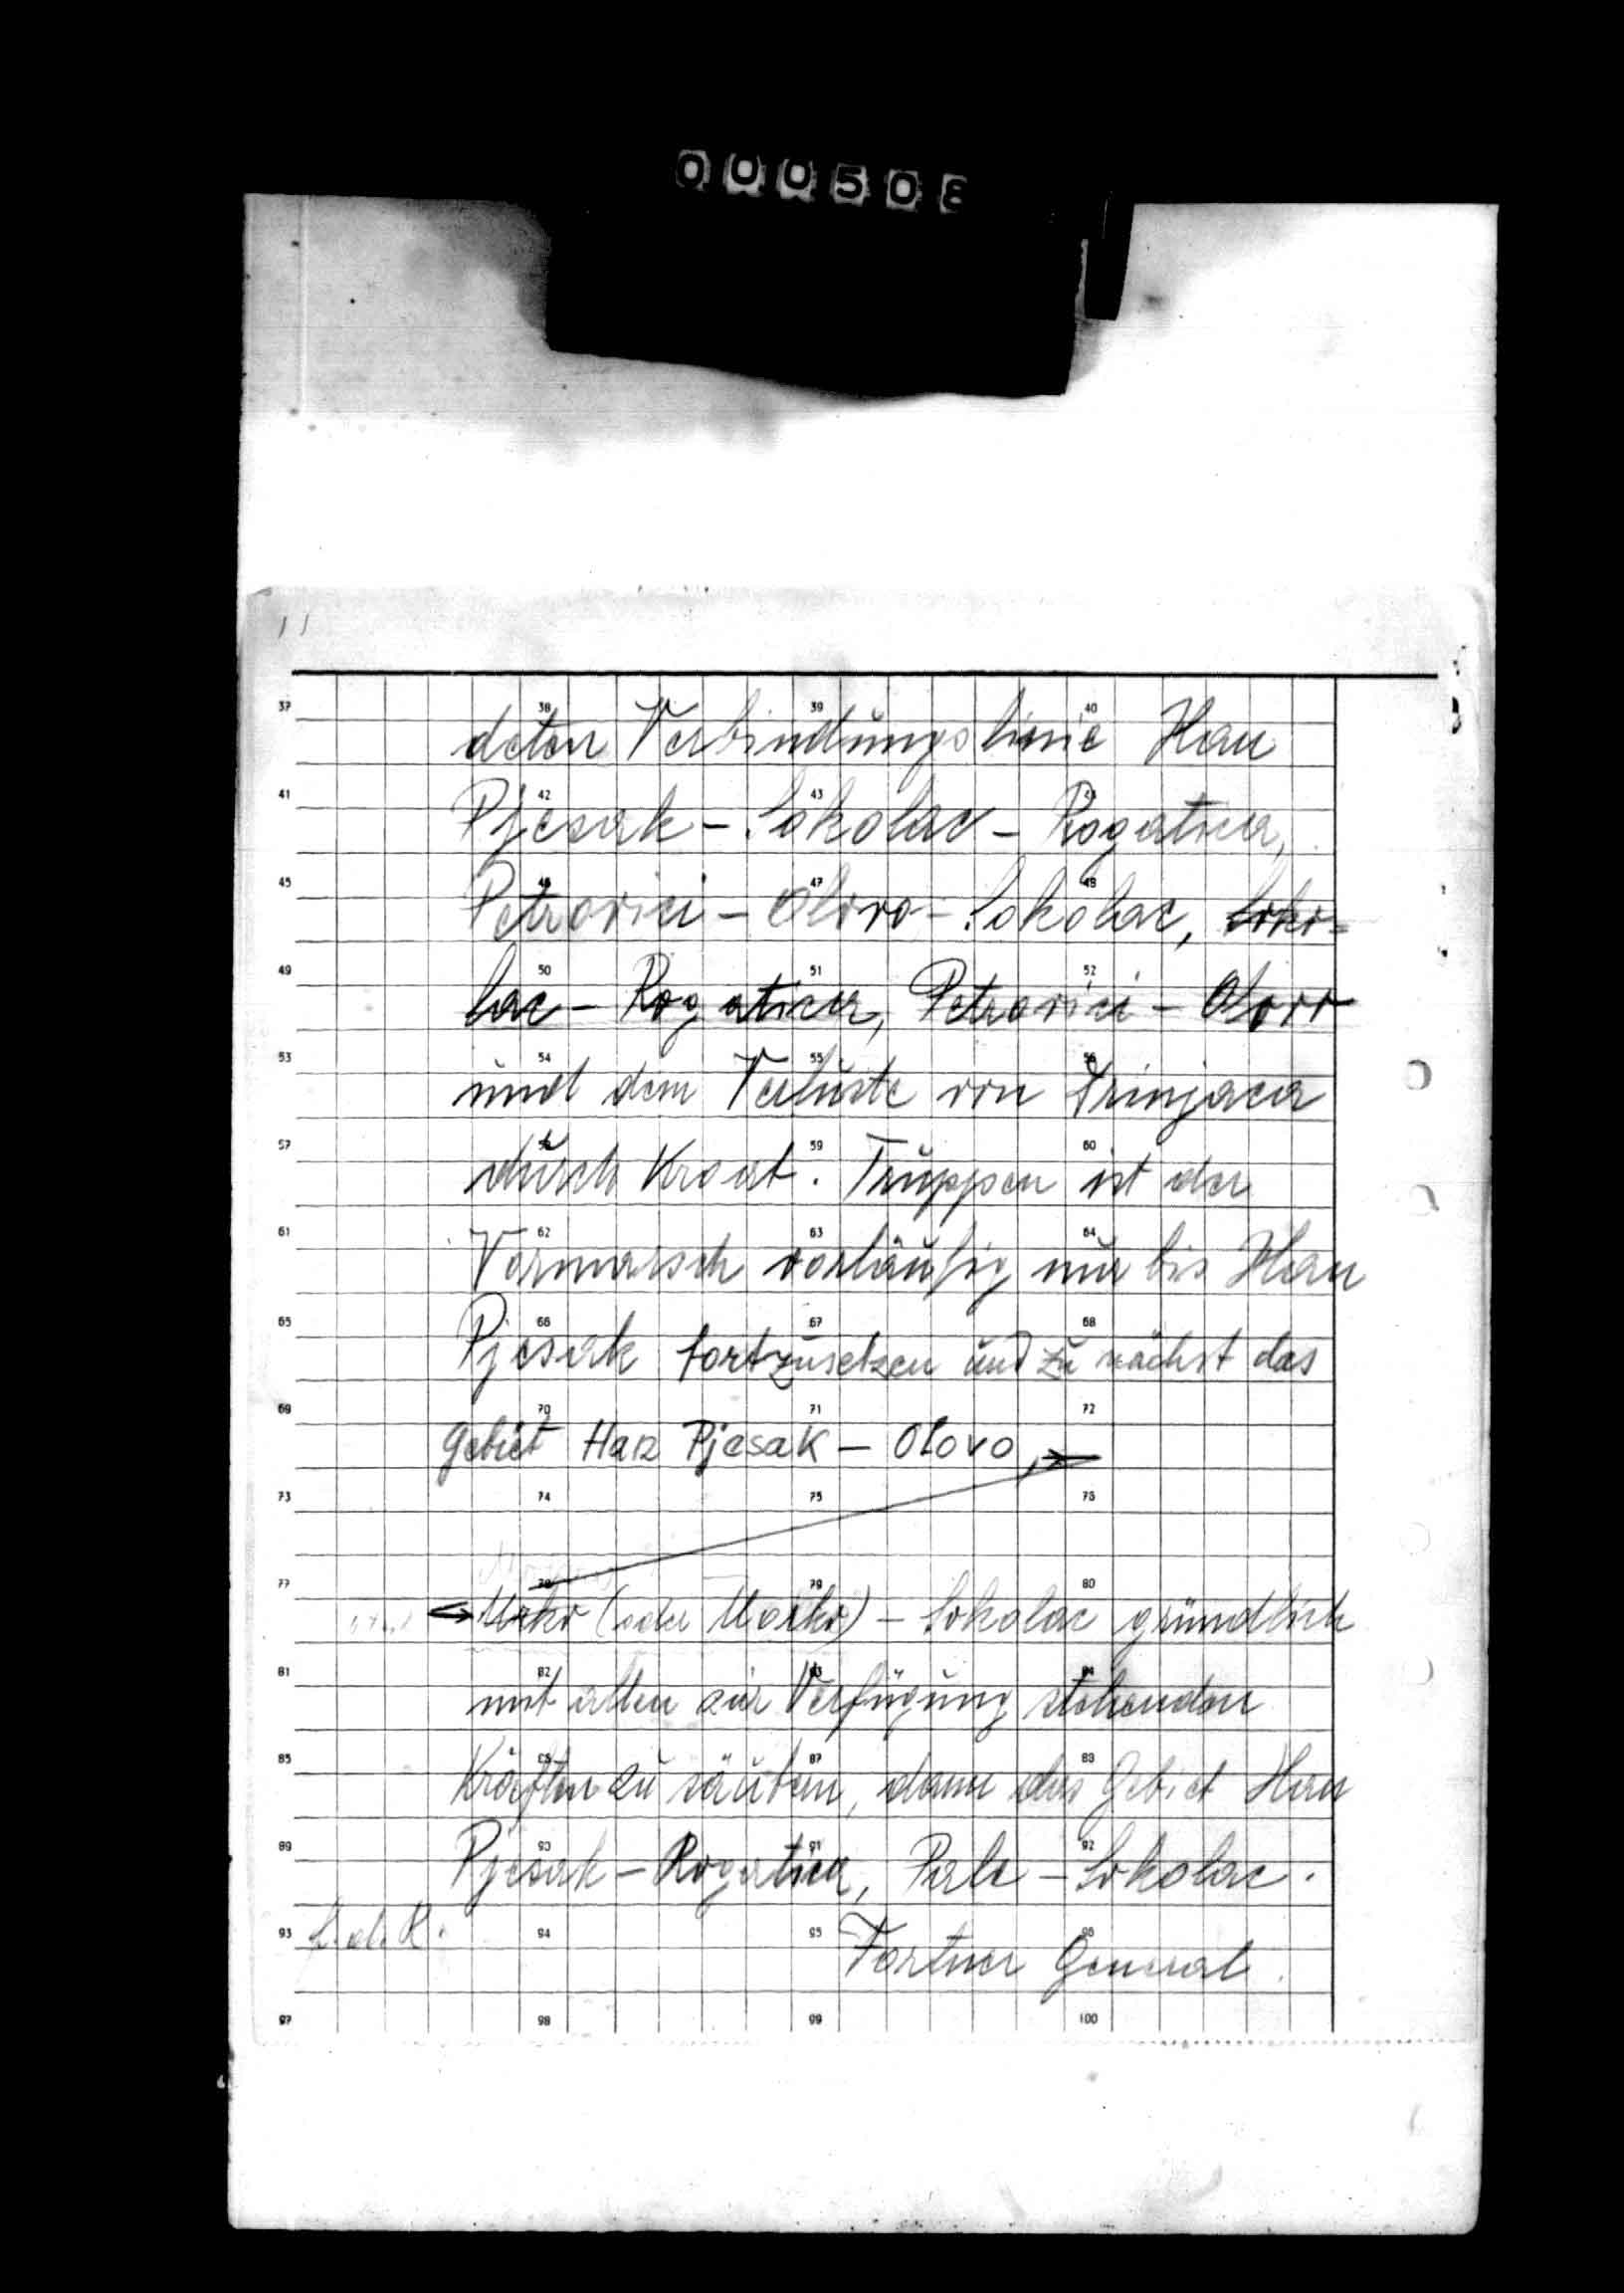 000508
11
37 38 39 40
deten Verbindungslinie Han
41 42 43 44
Pjesak – Sokolac – Rogatica,
45 46 47 48
Petrovici – Olovo – Sokolac, Soko=
49 50 51 52
lac – Rogatica, Petrovici – Olovo
53 54 55 56
und dem Verluste von
57 58 59 60
durch Kroat. Truppen ist der
61 62 63 64
Vormarsch vorläufig nur bis Han
65 66 67 68
Pjesak fortzusetzen und zu nächst das
69 70 71 72
Gebiet Han Pjesak – Olovo,
73 74 75 76
77 78 79 80
(oder – Sokolac gründlich
81 82 83 84
mit allen zur Verfügung stehenden
85 86 87 88
Kräften zu säubern, dann das Gebiet Han
89 90 91 92
Pjesak – Rogatica, Pale – Sokolac.
93 94 95 96
Fortner General.
97 98 99 100